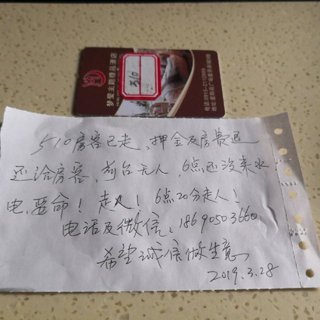 梦莹主题精品酒店
510
510房客已走,押金及房费退
还给房客,前台无人,6点还没来水
电,要命!走人!6点20分走人!
电话及微信:18690503660
希望诚信做生意
2019.3.28